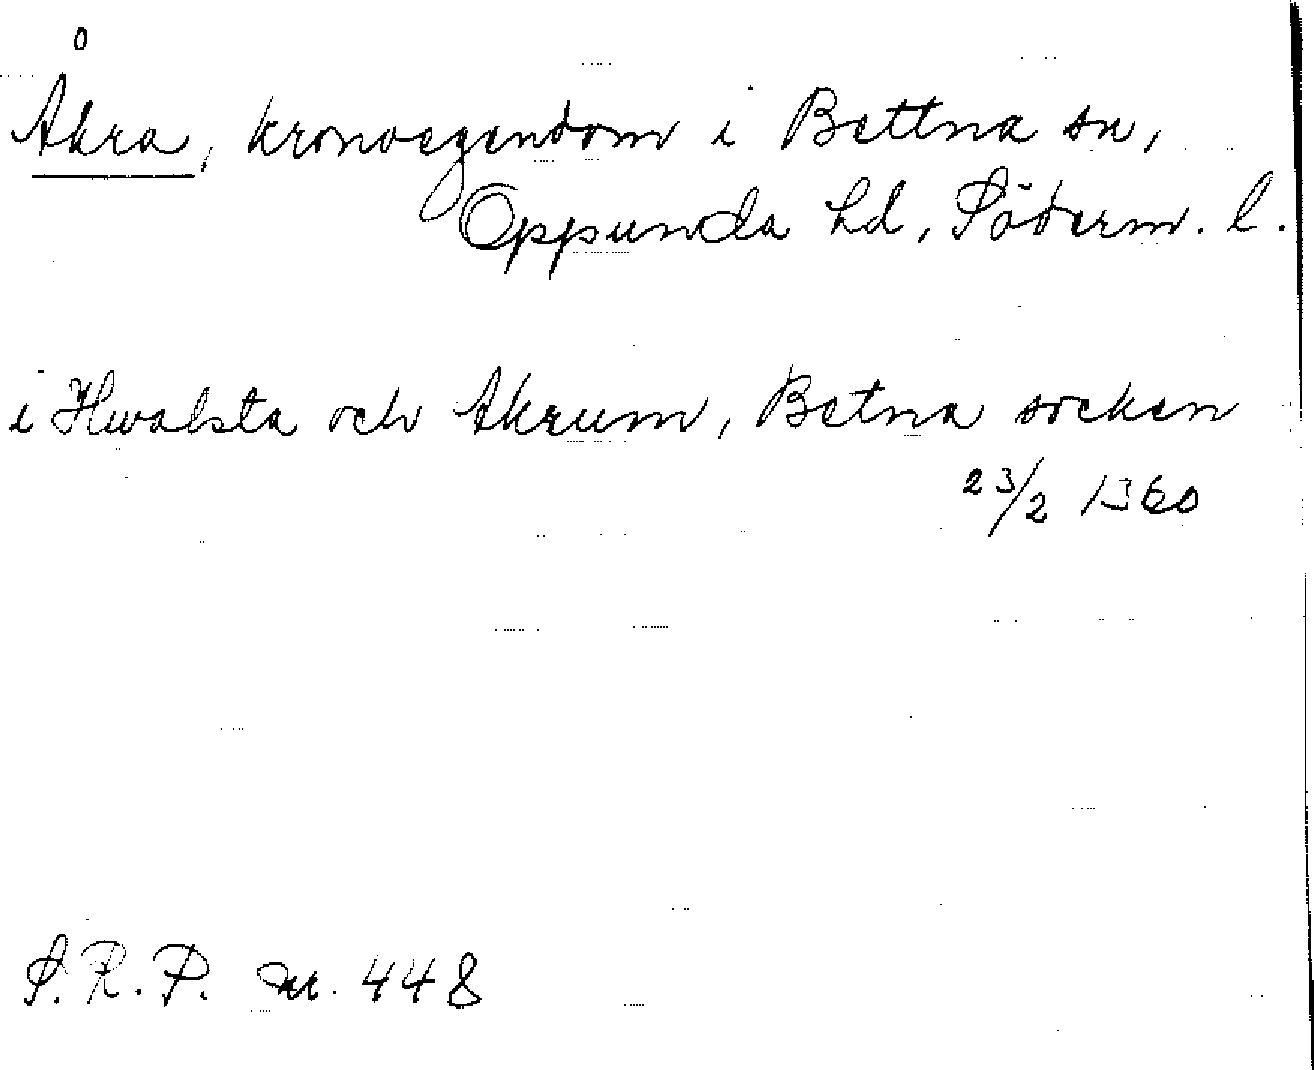 Åkra, kronoegendom i Bettna sn,
Oppunda hd, Söderm. l.
i Hwalsta och Akrum, Betna socken
23/2 1360
S.R.P. nr. 448